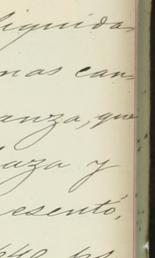 liquida
mas can-
anza, que
haza y
esentó,